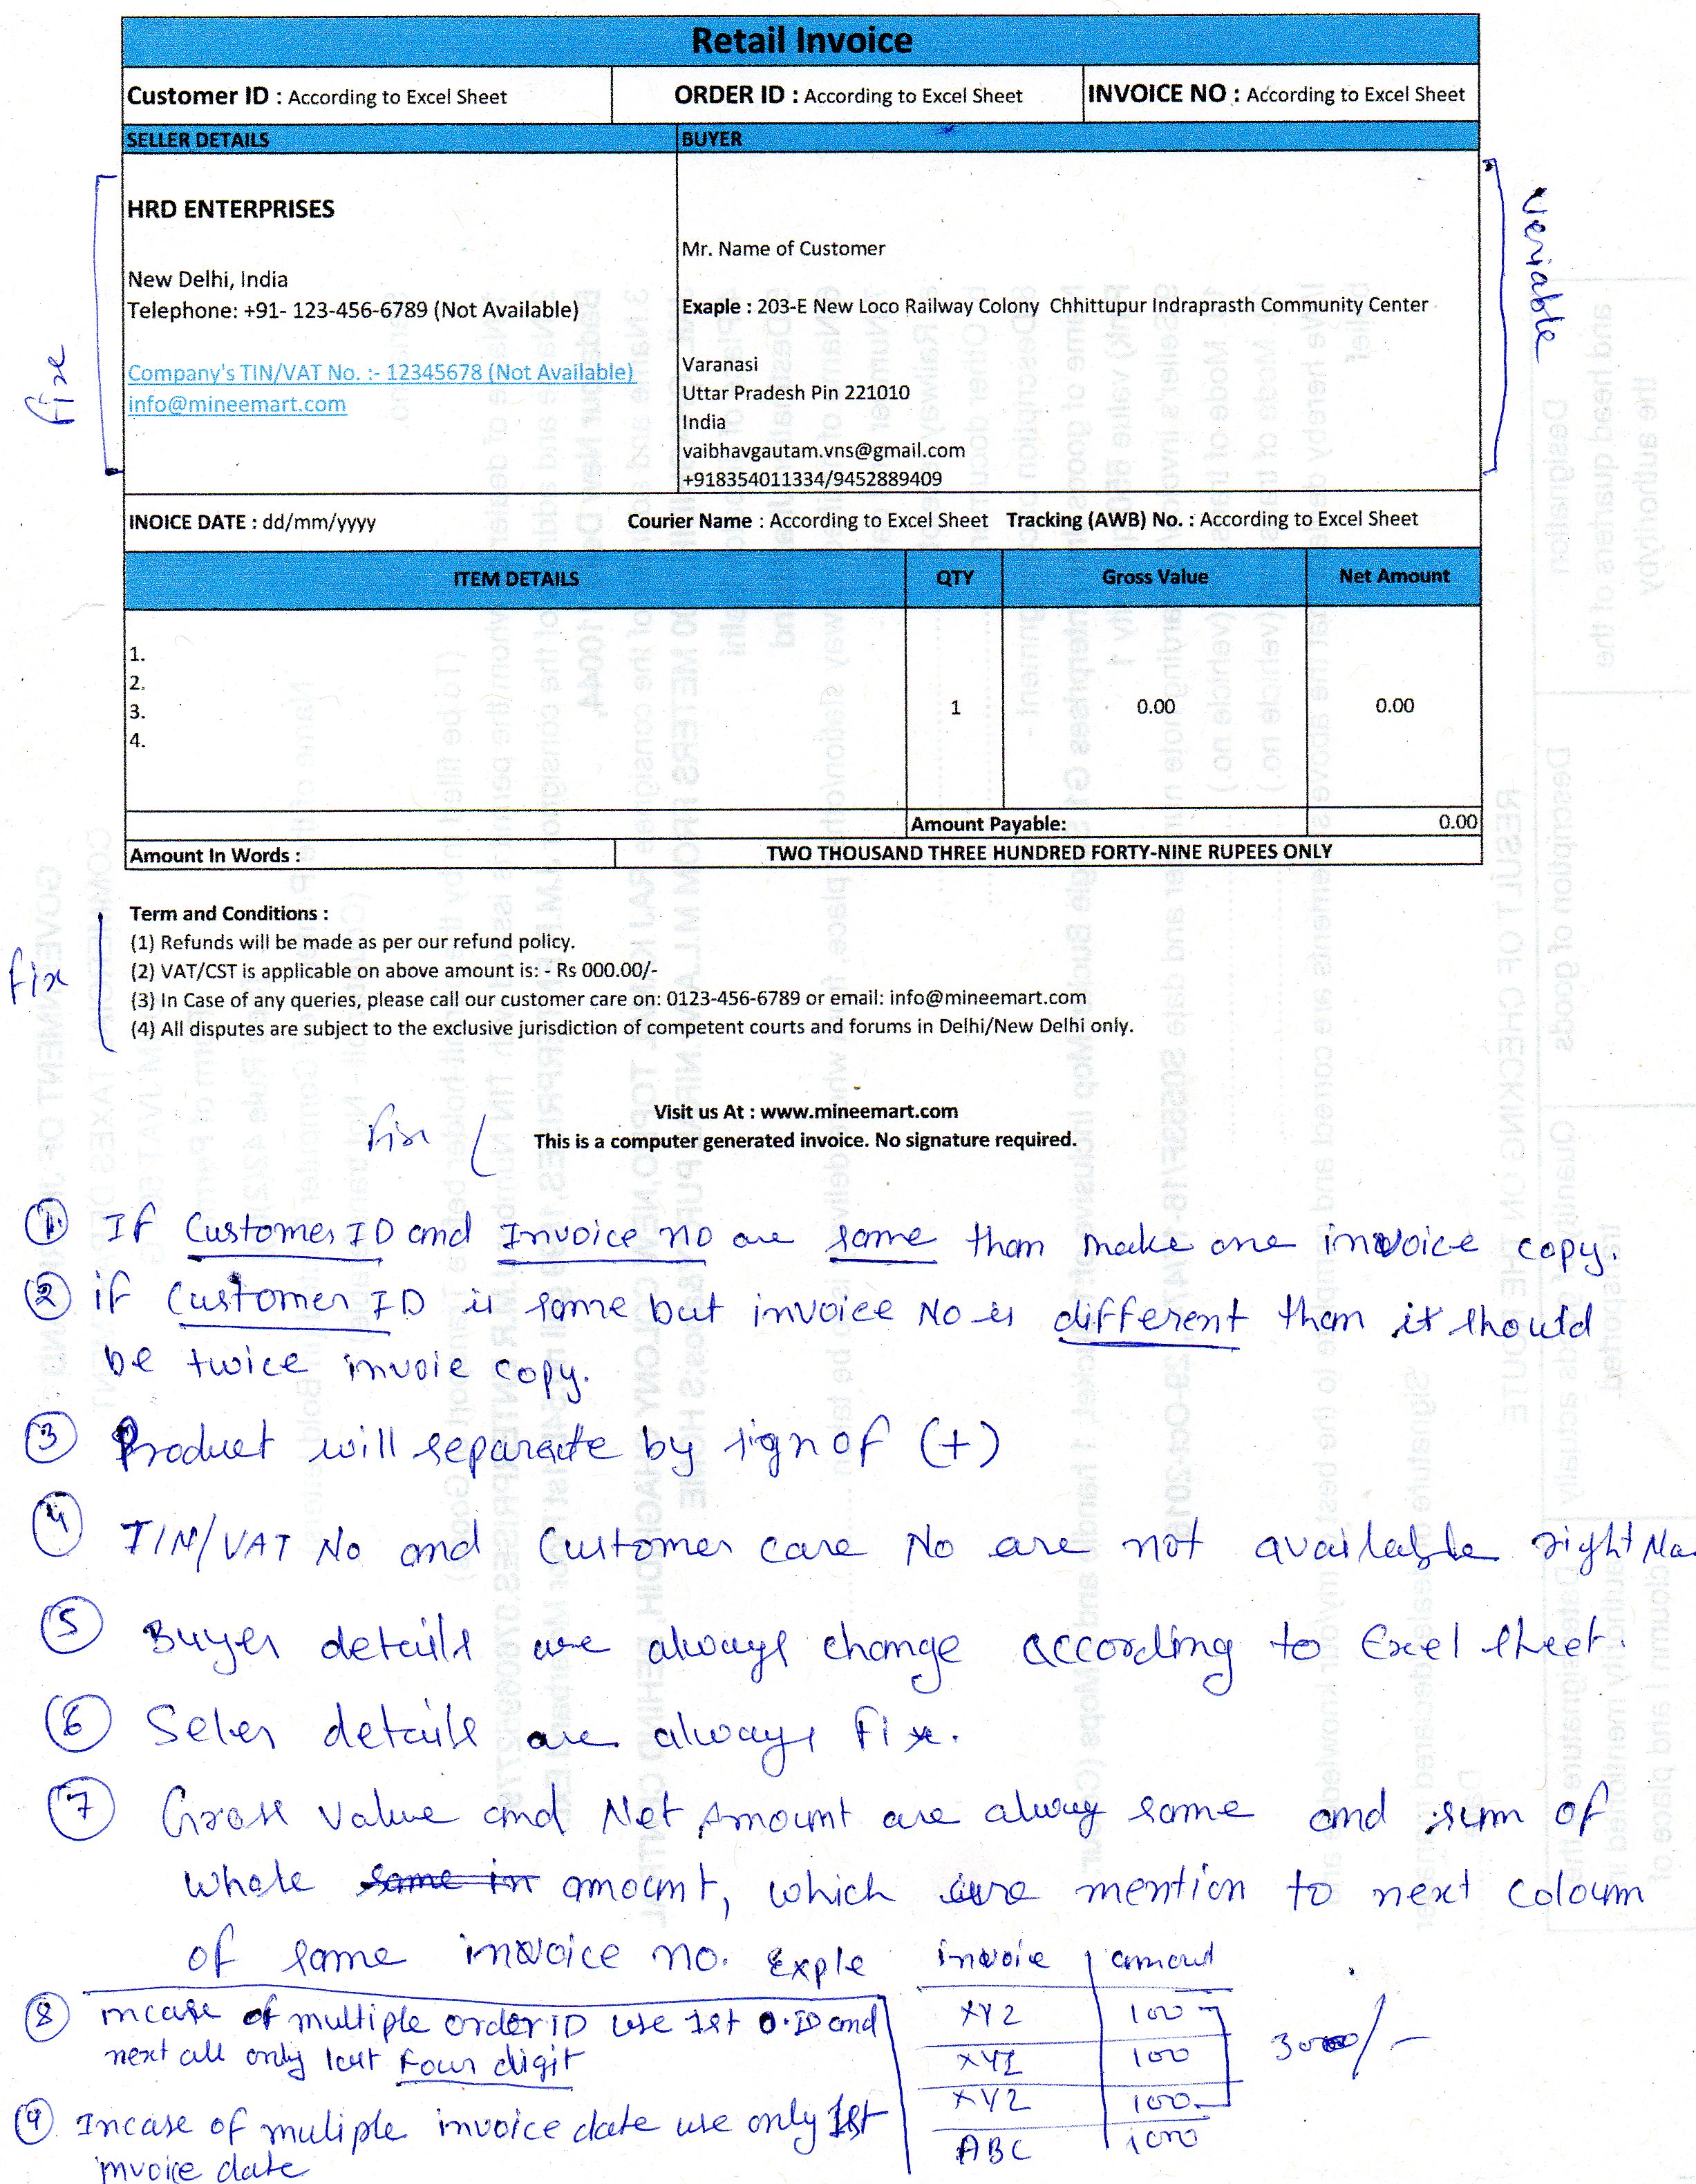 Retail Invoice
Customer ID : According to Excel Sheet ORDER ID : According to Excel Sheet INVOICE NO : According to Excel Sheet
SELLER DETAILS BUYER
HRD ENTERPRISES
New Delhi, India
Telephone: +91- 123-456-6789 (Not Available)
Company's TIN/VAT No. :- 12345678 (Not Available)
info@mineemart.com
fixe
Mr. Name of Customer
Exaple : 203-E New Loco Railway Colony Chhittupur Indraprasth Community Center
Varanasi
Uttar Pradesh Pin 221010
India
vaibhavgautam.vns@gmail.com
+918354011334/9452889409
Veriable
INOICE DATE : dd/mm/yyyy Courier Name : According to Excel Sheet Tracking (AWB) No. : According to Excel Sheet
ITEM DETAILS QTY Gross Value Net Amount
1.
2.
3.
4.
1 0.00 0.00
Amount Payable: 0.00
Amount In Words : TWO THOUSAND THREE HUNDRED FORTY-NINE RUPEES ONLY
Term and Conditions :
(1) Refunds will be made as per our refund policy.
(2) VAT/CST is applicable on above amount is: - Rs 000.00/-
(3) In Case of any queries, please call our customer care on: 0123-456-6789 or email: info@mineemart.com
(4) All disputes are subject to the exclusive jurisdiction of competent courts and forums in Delhi/New Delhi only.
fix
Visit us At : www.mineemart.com
This is a computer generated invoice. No signature required.
fix
① If Customer ID and Invoice no are same than make one invoice copy.
② if Customer ID is same but invoice No is different than it should
be twice invoie copy.
③ Product will separate by sign of (+)
④ TIN/VAT No and Customer care No are not available right
⑤ Buyer details are always change according to Excel sheet.
⑥ Seler details are always Fix.
⑦ Gross Value and Net Amount are alway same and sum of
whole same in amount, which are mention to next coloum
of same invoice no. Exple
invoie amout
XYZ 100
XYZ 100
XYZ 100
ABC 1000
⑧ incase of multiple order ID use 1st O.ID and
next all only last Four digit
⑨ Incase of muliple invoice date use only 1st
invoice date